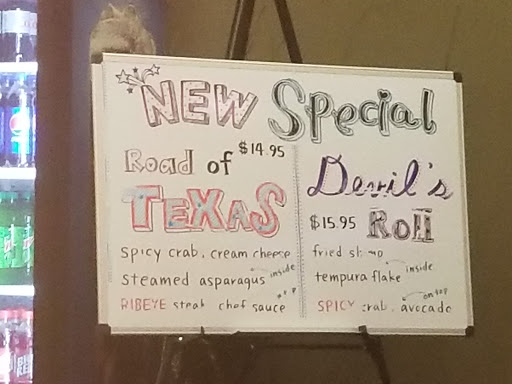 NEW Special
Road of $14.95
TEXAS
spicy crab, cream cheese
steamed asparagus inside
RIBEYE steak chef sauce
Devil's
$15.95 Roll
fried
tempura flake inside
SPICY crab, avocado on top